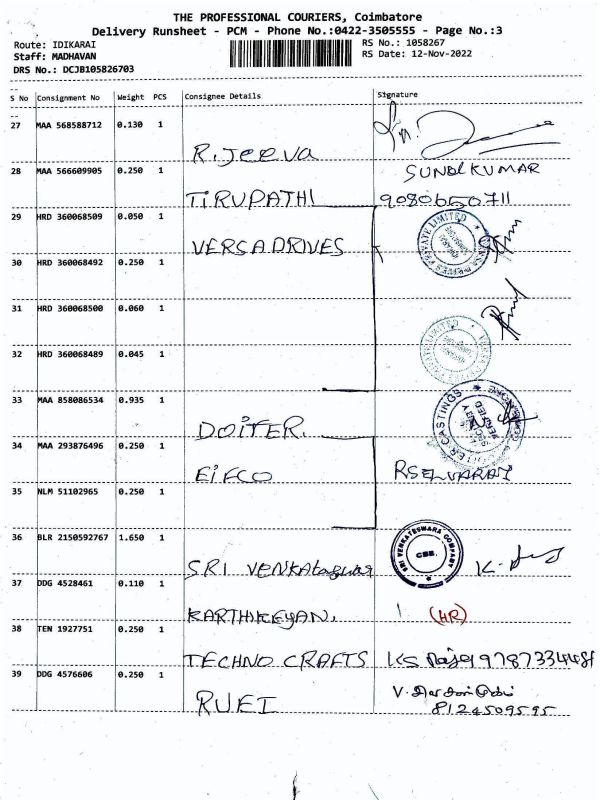 THE PROFESSIONAL COURIERS, Coimbatore
Delivery Runsheet - PCM - Phone No.:0422-3505555 - Page No.:3
Route: IDIKARAI RS No.: 1058267
Staff: MADHAVAN RS Date: 12-Nov-2022
DRS No.: DCJB105826703
S No Consignment No Weight PCS Consignee Details Signature
27 MAA 568588712 0.130 1
R.Jeeva
28 MAA 566609905 0.250 1 SUNDL KUMAR
TIRUPATHI 9080650711
29 HRD 360068509 0.050 1
VERSADRIVES
30 HRD 360068492 0.250 1
31 HRD 360068500 0.060 1
32 HRD 360068489 0.045 1
33 MAA 858086534 0.935 1
DOITER.
34 MAA 293876496 0.250 1
EIFCO RSELVARAJ
35 NLM 51102965 0.250 1
36 BLR 2150592767 1.650 1
SRI VENKATESWARA COMPANY
CBE.
SRI VENKAtaswar
37 DDG 4528461 0.110 1
KARTHIKEYAN. (HR)
38 TEN 1927751 0.250 1
TECHNO CRAFTS
39 DDG 4576606 0.250 1
RUEI 8124509595